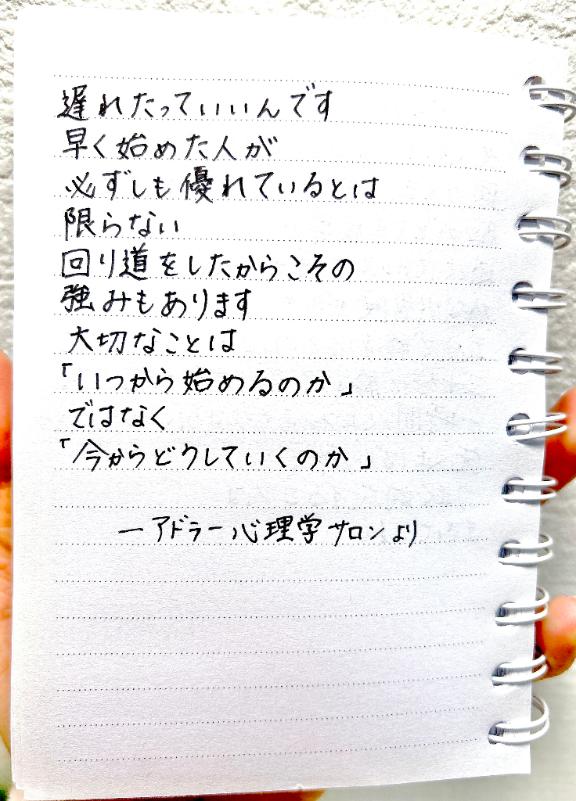 遅れたっていいんです
早く始めた人が
必ずしも優れているとは
限らない
回り道をしたからこその
強みもあります
大切なことは
「いつから始めるのか」
ではなく
「今からどうしていくのか」
—アドラー心理学サロンより